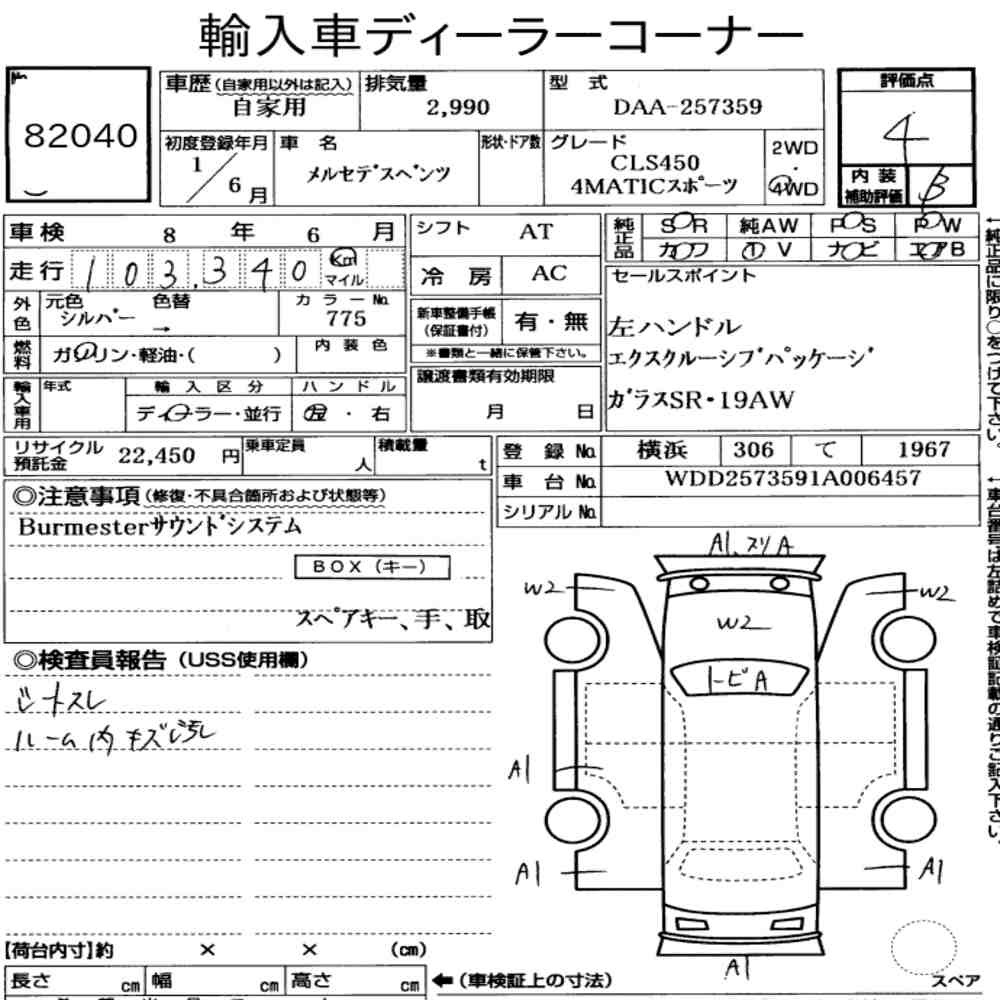 輸入車ディーラーコーナー
82040
車歴(自家用以外は記入) 自家用
排気量 2,990
型式 DAA-257359
評価点 4
初度登録年月 1/6月
車名 メルセデスベンツ
形状・ドア数
グレード CLS450 4MATICスポーツ
2WD・4WD
内装補助評価 B
車検 8年6月
シフト AT
純正品 SR 純AW PS PW
カワ ① V ナビ エアB
走行 103,340 Km マイル
冷房 AC
セールスポイント
左ハンドル
エクスクルーシブパッケージ
ガラスSR・19AW
外色 元色 シルバー 色替 →
カラーNo. 775
新車整備手帳(保証書付) 有・無
※書類と一緒に保管下さい。
燃料 ガソリン・軽油・( )
内装色
譲渡書類有効期限 月 日
輸入車用 年式
輸入区分 ディーラー・並行
ハンドル 左・右
リサイクル預託金 22,450円
乗車定員 人
積載量 t
登録No. 横浜 306 て 1967
車台No. WDD2573591A006457
シリアルNo.
◎注意事項(修復・不具合箇所および状態等)
Burmesterサウンドシステム
BOX(キー)
スペアキー、手、取
◎検査員報告(USS使用欄)
シートスレ
ルーム内キズ汚し
A1、スリA
W2
W2
W2
トビA
A1
A1
A1
A1
【荷台内寸】約 × × (cm)
長さ cm 幅 cm 高さ cm
←(車検証上の寸法)
スペア
←純正品に限り○をつけて下さい。
←車台番号は左詰めで車検証記載の通りご記入下さい。